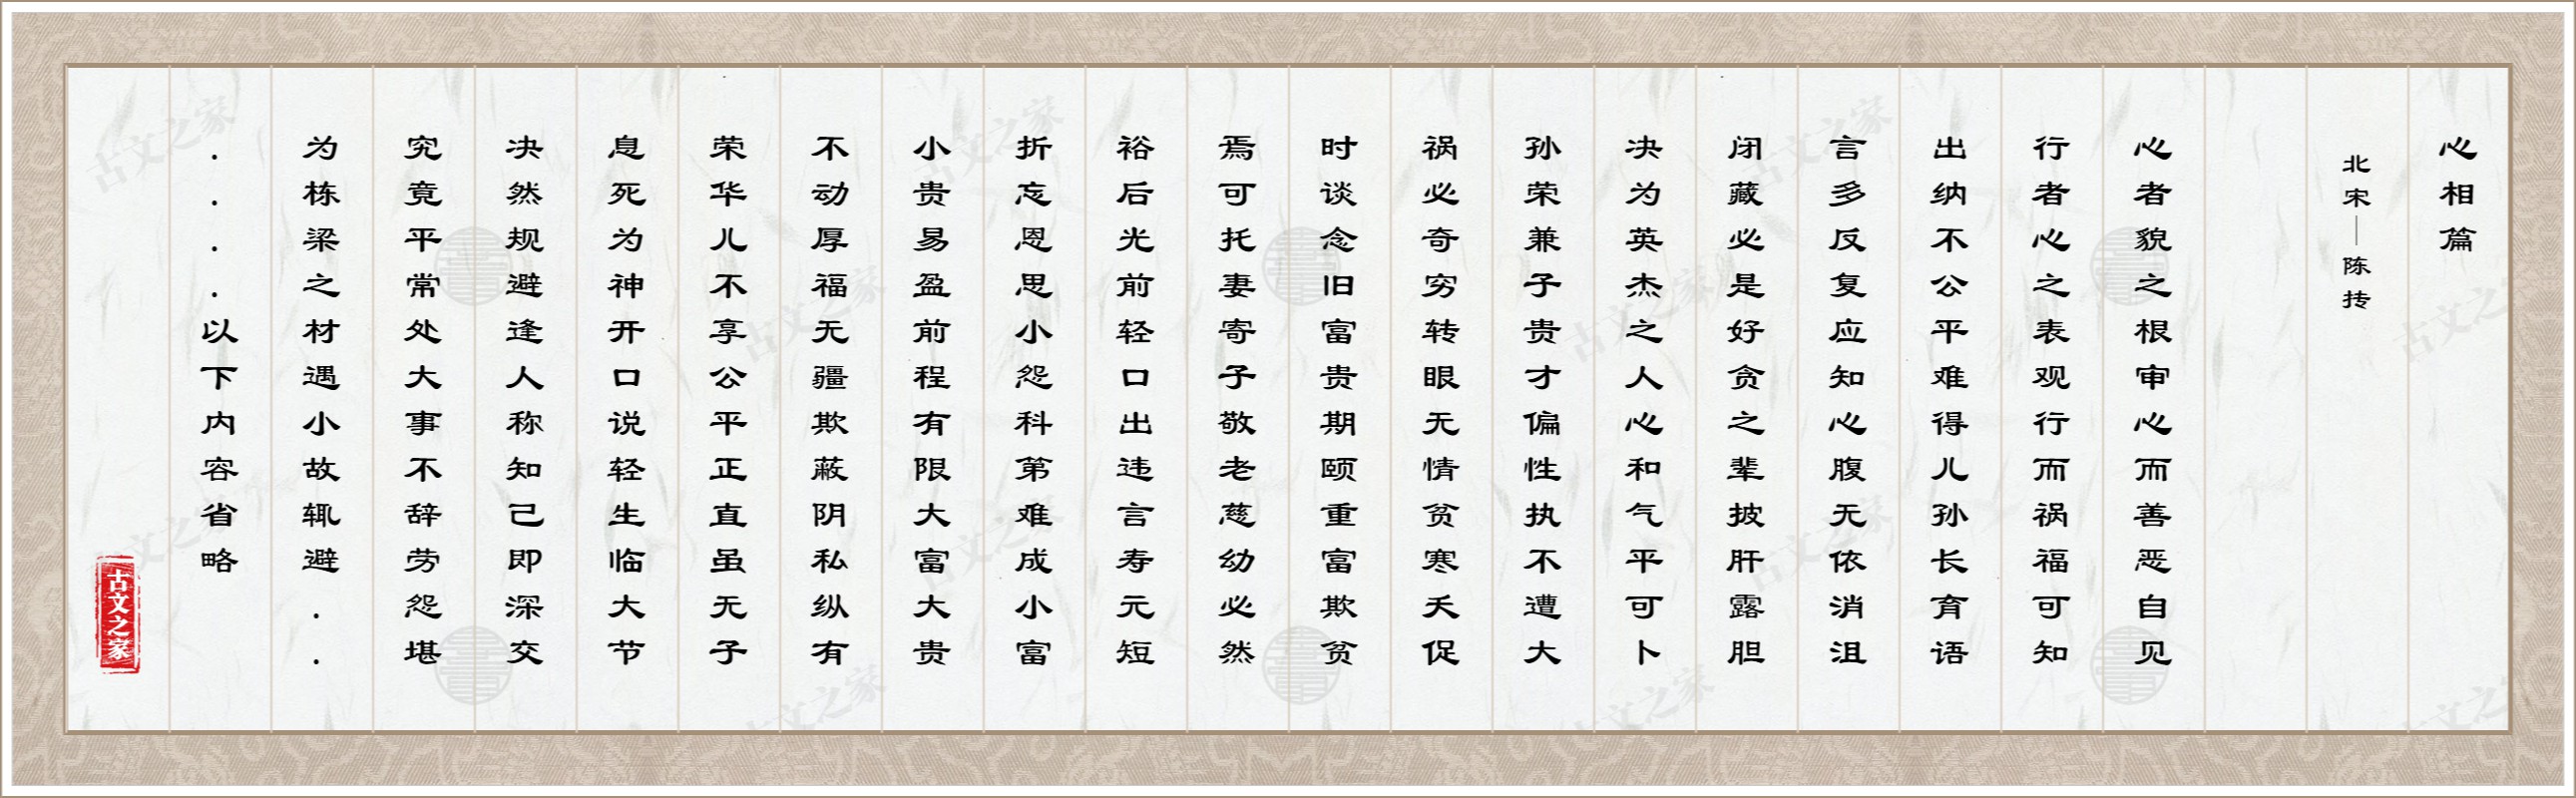 心相篇
北宋—陈抟
心者貌之根审心而善恶自见
行者心之表观行而祸福可知
出纳不公平难得儿孙长育语
言多反复应知心腹无依消沮
闭藏必是好贪之辈披肝露胆
决为英杰之人心和气平可卜
孙荣兼子贵才偏性执不遭大
祸必奇穷转眼无情贫寒夭促
时谈念旧富贵期颐重富欺贫
焉可托妻寄子敬老慈幼必然
裕后光前轻口出违言寿元短
折忘恩思小怨科第难成小富
小贵易盈前程有限大富大贵
不动厚福无疆欺蔽阴私纵有
荣华儿不享公平正直虽无子
息死为神开口说轻生临大节
决然规避逢人称知己即深交
究竟平常处大事不辞劳怨堪
为栋梁之材遇小故辄避..
....以下内容省略
古文之家